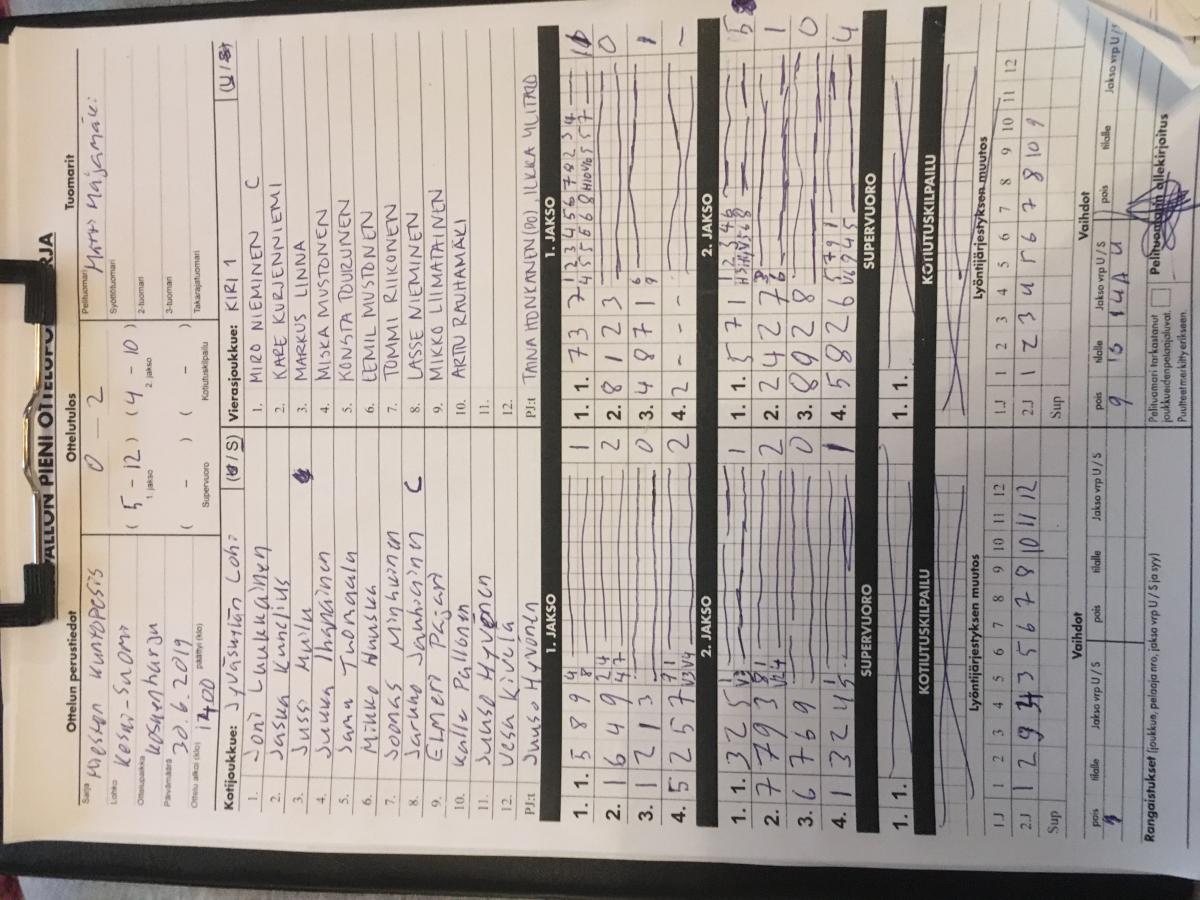 PALLON PIENI OTTELUPÖ RJA
Ottelun perustiedot Ottelutulos Tuomarit
Sarja Miesten Kuntopesis
Lohko Keski-Suomi
Ottelupaikka Koskenharju
Päivämäärä 30.6.2019
Ottelu alkoi (klo) 1400 päättyi (klo)
0 - 2
( 5 - 12 ) ( 4 - 10 )
1. jakso 2. jakso
( - ) ( - )
Supervuoro Kotiutuskilpailu
Pelituomari Harri Majamäki
Syöttötuomari
2-tuomari
3-tuomari
Takarajatuomari
Kotijoukkue: Jyväskylän Lohi (U/S)
1. Joni Luukkainen
2. Jaska Kunelius
3. Jussi
4. Jukka Ihalainen
5. Samu Tuomala
6. Mikko Huuska
7. Joonas Minkkinen
8. Jarkko C
9. Elmeri Pajari
10. Kalle Pallonen
11. Juuso Hyvönen
12. Vesa Kivelä
PJ:t Juuso Hyvönen
Vierasjoukkue: KIRI 1 (U/S)
1. MIRO NIEMINEN C
2. KARE KURJENNIEMI
3. MARKUS LINNA
4. MISKA MUSTONEN
5. KONSTA TOURUNEN
6. EEMIL MUSTONEN
7. TOMMI RIIKONEN
8. LASSE NIEMINEN
9. MIKKO LIIMATAINEN
10. ARTTU RAUHAMÄKI
11.
12.
PJ:t TAINA HONKANEN (PO), ILKKA YLITALO
1. JAKSO 1. JAKSO
1. 1. 5 8 9 4 8 1
2. 1 6 4 9 2 4 4 7 2
3. 1 2 1 3 0
4. 5 2 5 7 9 1 V3 V4 2
1. 1. 7 3 7 1 2 3 4 5 6 7 8 2 3 4
2. 8 1 2 3 0
3. 4 8 7 1 6 9 1
4. 2 - - - -
2. JAKSO 2. JAKSO
1. 1. 3 2 5 1 1
2. 7 7 9 3 8 1 2
3. 6 7 6 9 0
4. 1 3 2 4 1 5 1
1. 1. 5 7 1 1 2 3 4 6 5
2. 2 4 2 7 8 6 1
3. 8 9 2 8 0
4. 5 8 2 6 5 7 9 1 V6 9 4 5 4
SUPERVUORO SUPERVUORO
1. 1. 1. 1.
KOTIUTUSKILPAILU KOTIUTUSKILPAILU
Lyöntijärjestyksen muutos Lyöntijärjestyksen muutos
1.J 1 2 3 4 5 6 7 8 9 10 11 12
2.J 1 2 9 4 3 5 6 7 8 10 11 12
Sup
1.J 1 2 3 4 5 6 7 8 9 10 11 12
2.J 1 2 3 4 5 6 7 8 10 9
Sup
Vaihdot Vaihdot
pois tilalle Jakso vrp U/S pois tilalle Jakso vrp U/S
pois tilalle Jakso vrp U/S pois tilalle Jakso vrp U/S
9 10 1 4A U
Rangaistukset (joukkue, pelaaja nro, jakso vrp U/S ja syy)
Pelituomari tarkastanut joukkueidenpelaajaluvat.
Puutteet merkitty erikseen.
Pelituomarin allekirjoitus